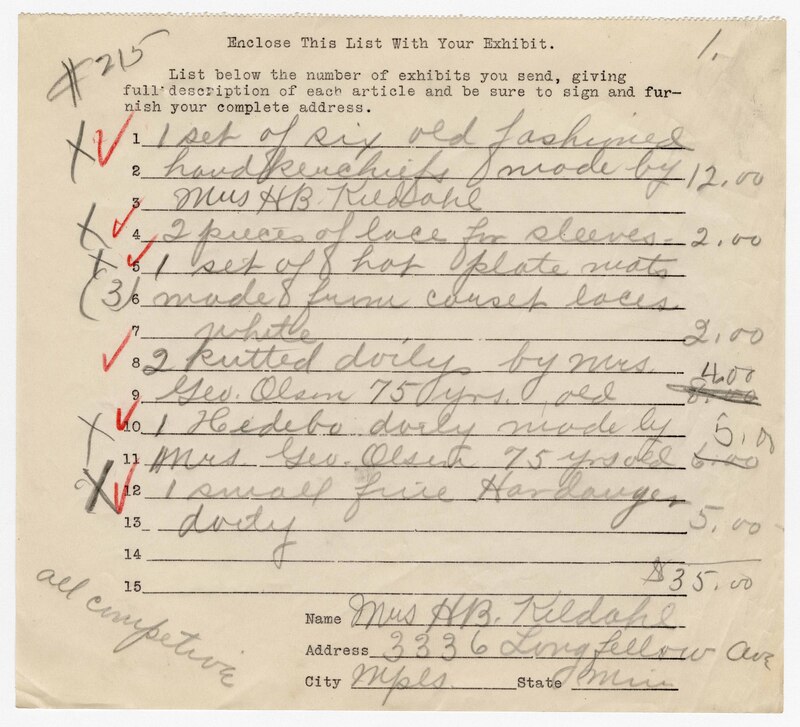 #215
1.
Enclose This List With Your Exhibit.
List below the number of exhibits you send, giving
full description of each article and be sure to sign and fur-
nish your complete address.
1 1 set of six old fashioned
2 handkerchiefs made by 12.00
3 Mrs HB. Kildahl
4 2 pieces of lace for sleeves - 2.00
5 1 set of hot plate mats
(3) 6 made from corset laces
7 white 2.00
8 2 knitted doily by Mrs. 4.00
9 Geo. Olsen 75 yrs. old
10 1 Hedebo doily made by 5.00
11 Mrs. Geo. Olsen 75 yrs old 6.00
12 1 small fine Hardanger
13 doily 5.00
14
15 $35.00
all competive
Name Mrs HB. Kildahl
Address 3336 Longfellow Ave
City Mpls. State Minn